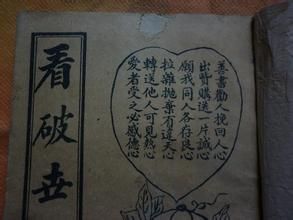 善書勸人挽回人心
出貲購送一片誠心
願我同人各存良心
拉雜拋棄有違天心
轉送他人可見熱心
愛者受之必感德心
看破世